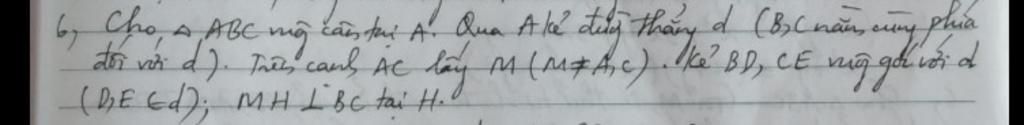 6, Cho △ ABC vuông cân tại A. Qua A kẻ đường thẳng d (B,C nằm cùng phía
đối với d). Trên cạnh AC lấy M (M ≠ A,C). Kẻ BD, CE vuông góc với d
(D,E ∈ d); MH ⊥ BC tại H.